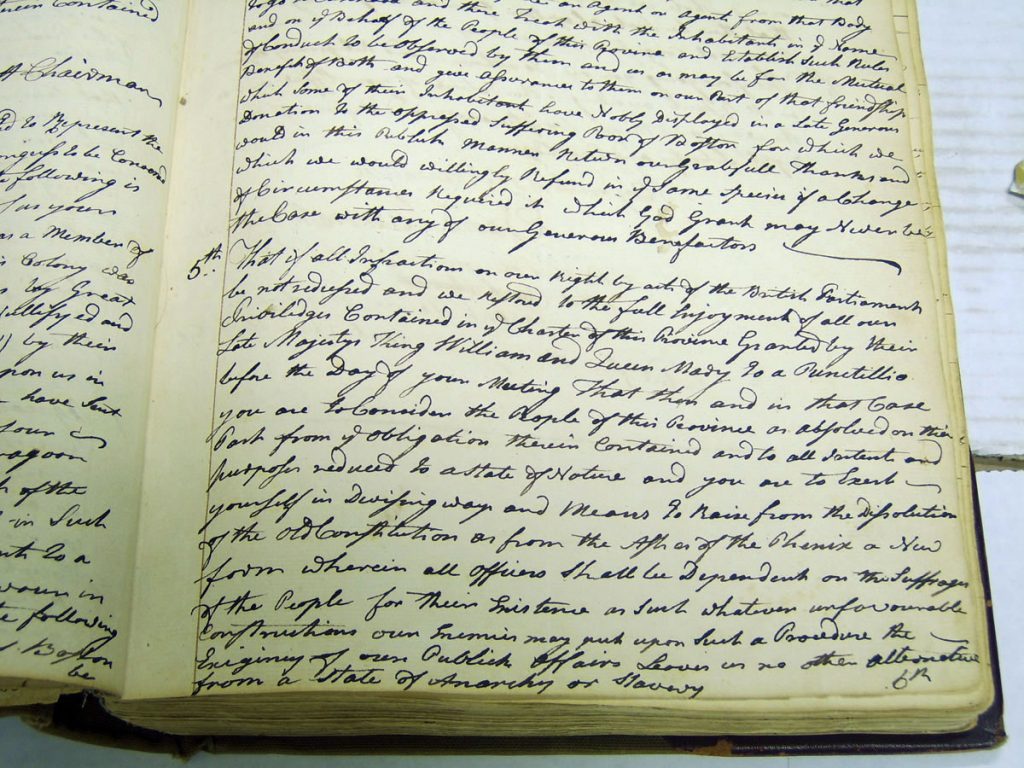 ein Contained
A Chairman
d to Represent the
ongress to be Convened
following is
as yours
as a Member of
Colony was
by Great
by their
upon us in
have Sent
your
ragoon
of the
in Such
to a
in
following
Boston
be
that
to go to and there Treat with the Inhabitants in ye Name
and on ye Behalf of the People of this Province and Establish Such Rules
of Conduct to be Observed by them and us as may be for the Mutual
Benefit of Both and give assurances to them on our Part of that friendship
which Some of their Inhabitant have Nobly Displayed in a Late Generous
Donation to the oppressed Suffering Poor of Boston for which we
would in this Publick Manner Return our Gratefull Thanks and
which we would willingly Refund in ye Same Species if a Change
of Circumstances Required it which God Grant may Never be
the Case with any of our Generous Benefactors
5th That if all Infractions on our Right by acts of the British Parliament
be not redressed and we Restored to the full Enjoyment of all our
Priviledges Contained in ye Charter of this Province Granted by their
Late Majestys King William and Queen Mary to a Punctillio
before the Day of your Meeting That then and in that Case
you are to Consider the People of this Province as absolved on their
Part from ye obligation therein Contained and to all Intents and
purposes reduced to a State of Nature and you are to Exert
yourself in Devising ways and Means to Raise from the Dissolution
of the Old Constitution as from the Ashes of the Phenix a New
form wherein all officers Shall be Dependent on the Suffrages
of the People for their Existence as Such whatever unfavourable
Constructions our Enemies may put upon Such a Procedure the
Exigincy of our Publick Affairs Leaves us no other alternative
from a State of Anarchy or Slavery
6th